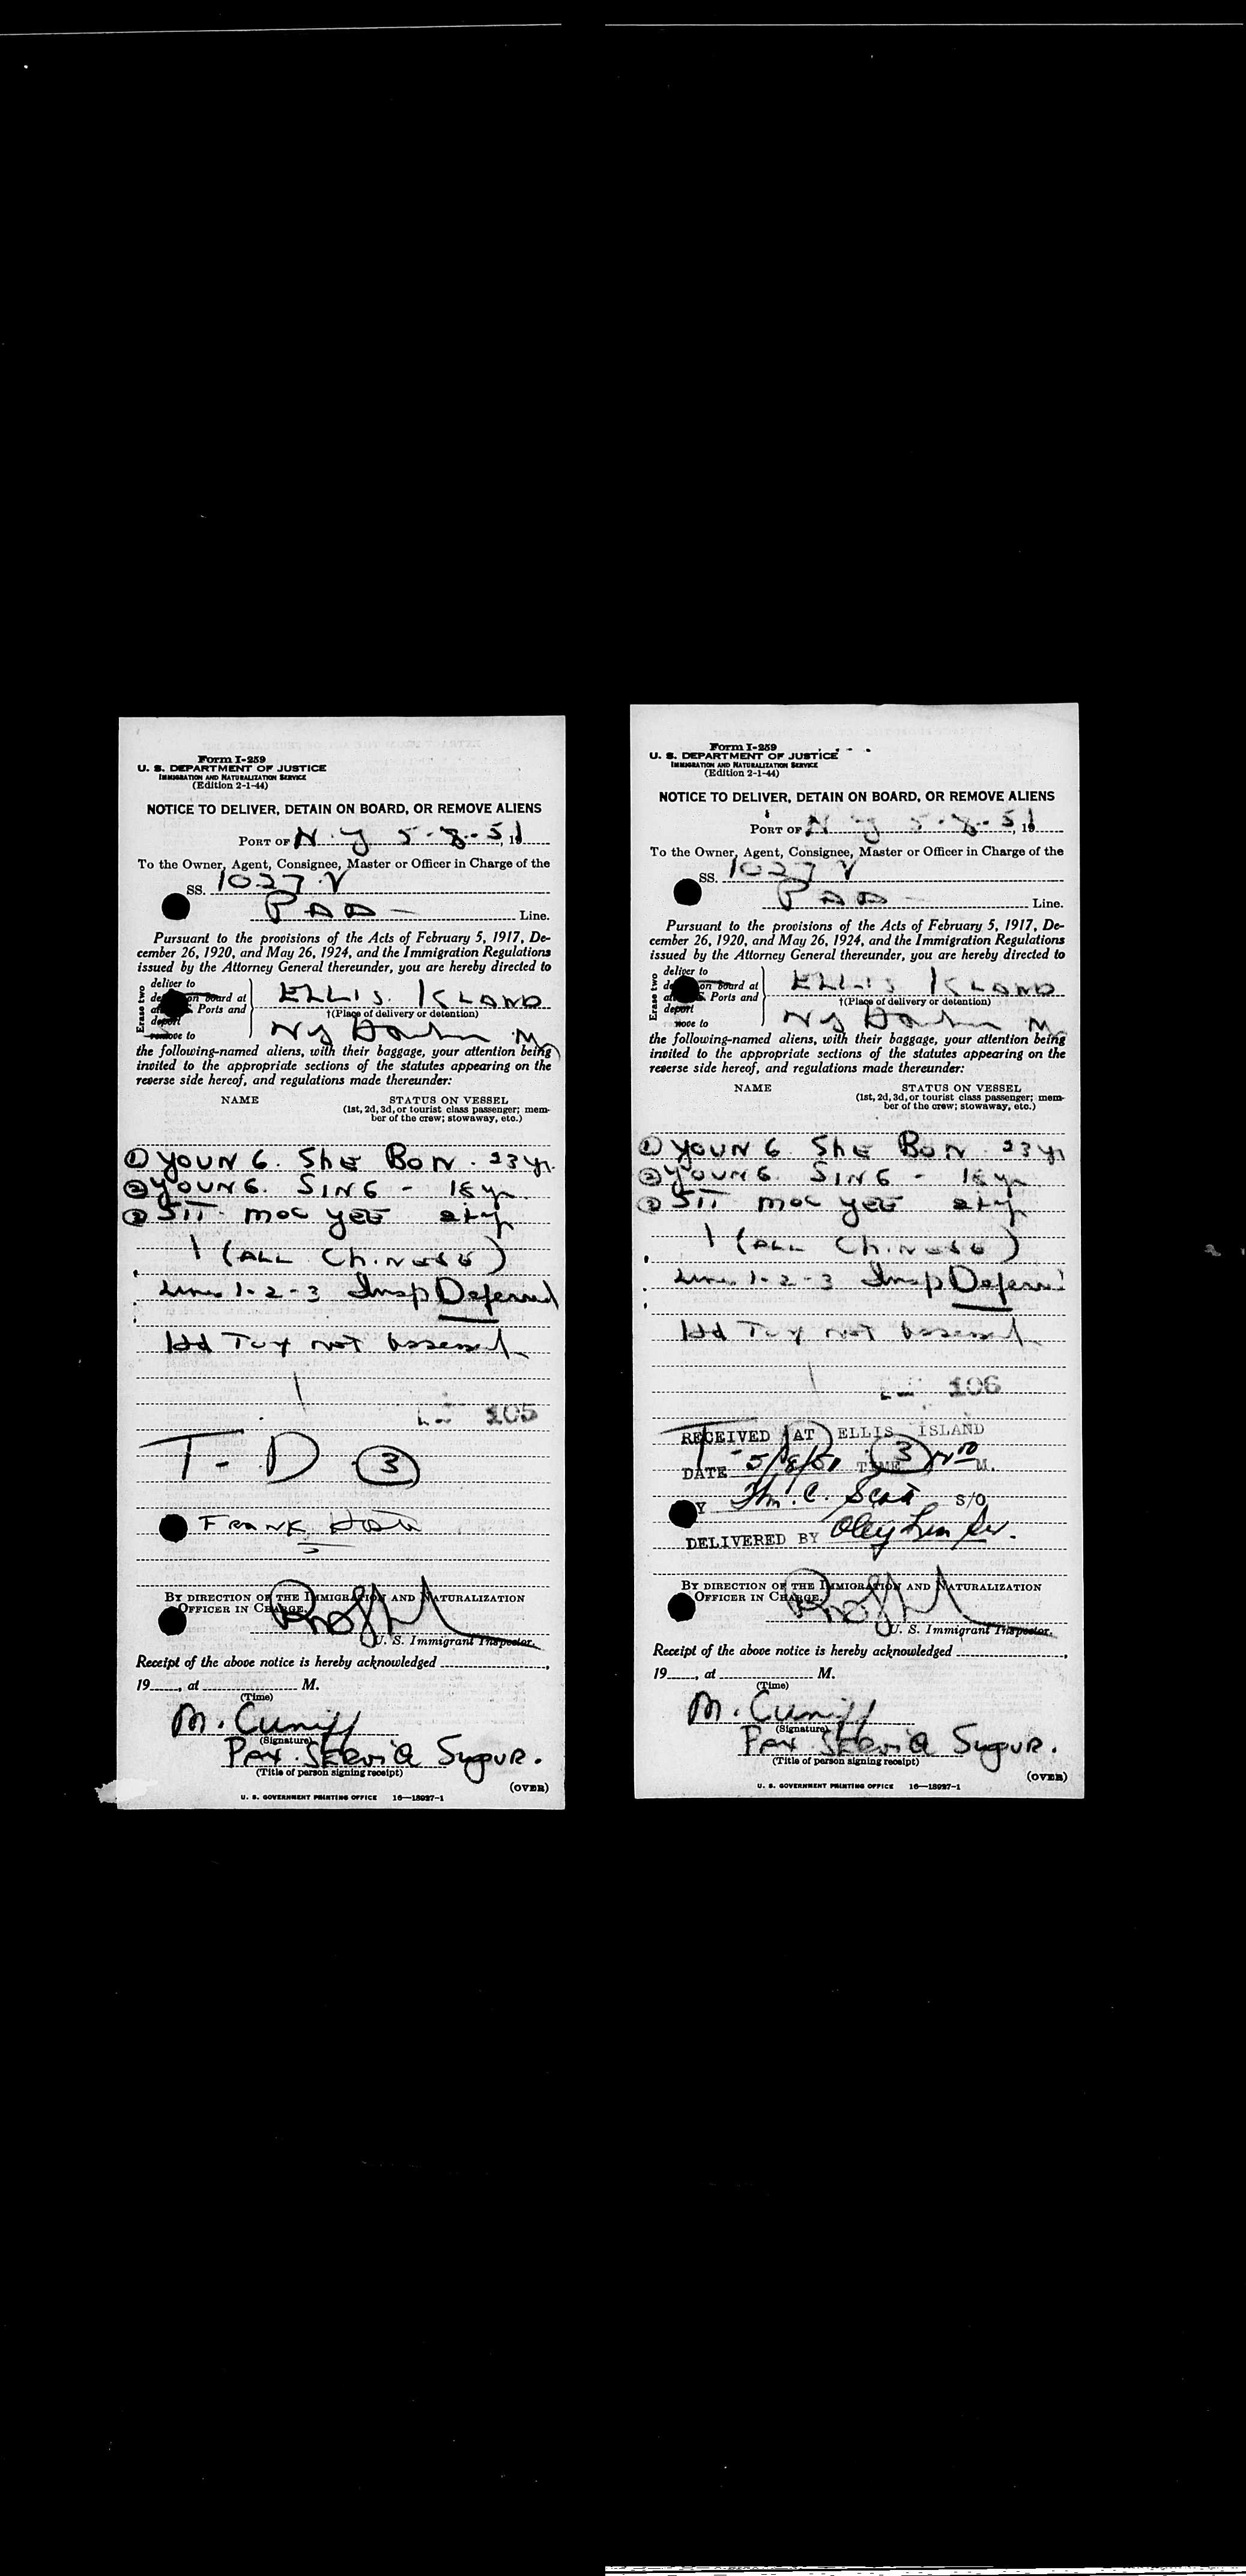 Form I-259
U. S. DEPARTMENT OF JUSTICE
IMMIGRATION AND NATURALIZATION SERVICE
(Edition 2-1-44)
NOTICE TO DELIVER, DETAIN ON BOARD, OR REMOVE ALIENS
PORT OF N. Y 5-8-51, 19
To the Owner, Agent, Consignee, Master or Officer in Charge of the
SS. 1027 V
PAA - Line.
Pursuant to the provisions of the Acts of February 5, 1917, De-
cember 26, 1920, and May 26, 1924, and the Immigration Regulations
issued by the Attorney General thereunder, you are hereby directed to
Erase two
deliver to
on board at
Ports and
deport
remove to
ELLIS ISLAND
†(Place of delivery or detention)
NY
the following-named aliens, with their baggage, your attention being
invited to the appropriate sections of the statutes appearing on the
reverse side hereof, and regulations made thereunder:
NAME STATUS ON VESSEL
(1st, 2d, 3d, or tourist class passenger; mem-
ber of the crew; stowaway, etc.)
① YOUNG. SHE BON. 23 yr.
② YOUNG. SING - 18 yr
③ SIT MOC YEE
(ALL CHINESE)
Lines 1-2-3 Insp Deferred
Hd Tax not assessed
105
T-D ③
FRANK
BY DIRECTION OF THE IMMIGRATION AND NATURALIZATION
OFFICER IN CHARGE.
U. S. Immigrant Inspector.
Receipt of the above notice is hereby acknowledged ,
19 , at M.
(Time)
M. Cuniff
(Signature)
Pax Service Supvr.
(Title of person signing receipt)
(OVER)
U. S. GOVERNMENT PRINTING OFFICE 16—18927-1
Form I-259
U. S. DEPARTMENT OF JUSTICE
IMMIGRATION AND NATURALIZATION SERVICE
(Edition 2-1-44)
NOTICE TO DELIVER, DETAIN ON BOARD, OR REMOVE ALIENS
PORT OF N. Y 5-8-51, 19
To the Owner, Agent, Consignee, Master or Officer in Charge of the
SS. 1027 V
PAA - Line.
Pursuant to the provisions of the Acts of February 5, 1917, De-
cember 26, 1920, and May 26, 1924, and the Immigration Regulations
issued by the Attorney General thereunder, you are hereby directed to
Erase two
deliver to
on board at
Ports and
deport
to
ELLIS ISLAND
†(Place of delivery or detention)
NY
the following-named aliens, with their baggage, your attention being
invited to the appropriate sections of the statutes appearing on the
reverse side hereof, and regulations made thereunder:
NAME STATUS ON VESSEL
(1st, 2d, 3d, or tourist class passenger; mem-
ber of the crew; stowaway, etc.)
① YOUNG SHE BON. 23 yr
② YOUNG SING - 18 yr
③ SIT MOC YEE
(ALL CHINESE)
Lines 1-2-3 Insp Deferred
Hd Tax not assessed
106
RECEIVED AT ELLIS ISLAND
T-D ③
DATE 5/8/51 TIME M.
C. Scott S/O
DELIVERED BY
BY DIRECTION OF THE IMMIGRATION AND NATURALIZATION
OFFICER IN CHARGE.
U. S. Immigrant Inspector.
Receipt of the above notice is hereby acknowledged ,
19 , at M.
(Time)
M. Cuniff
(Signature)
Pax Service Supvr.
(Title of person signing receipt)
(OVER)
U. S. GOVERNMENT PRINTING OFFICE 16—18927-1